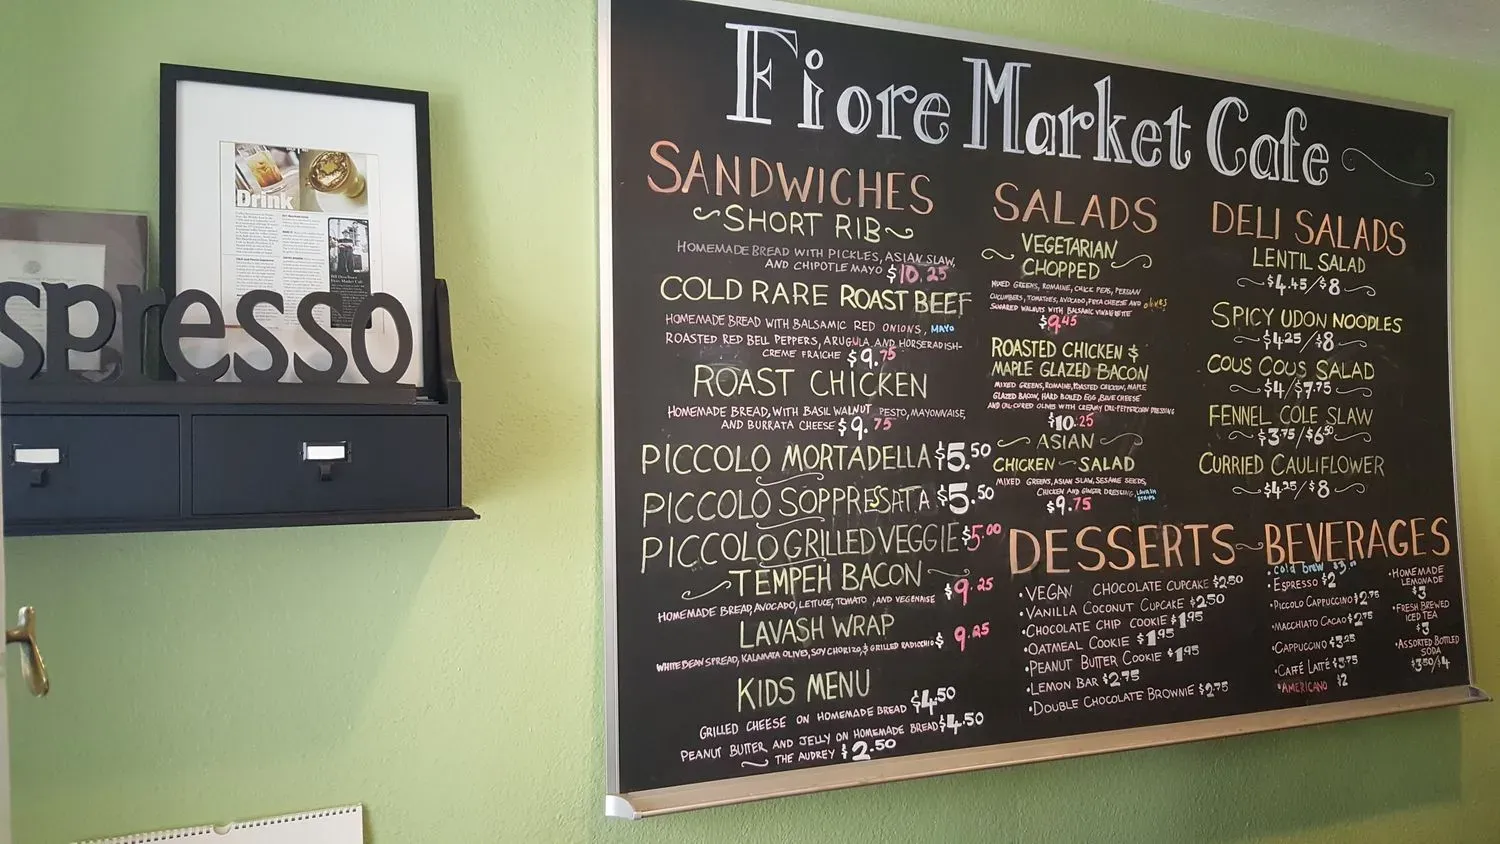 Drink
espresso
Fiore Market Cafe
SANDWICHES
SHORT RIB
HOMEMADE BREAD WITH PICKLES, ASIAN SLAW,
AND CHIPOTLE MAYO $10.25
COLD RARE ROAST BEEF
HOMEMADE BREAD WITH BALSAMIC RED ONIONS, MAYO
ROASTED RED BELL PEPPERS, ARUGULA AND HORSERADISH-
CREME FRAICHE $9.75
ROAST CHICKEN
HOMEMADE BREAD, WITH BASIL WALNUT PESTO, MAYONNAISE,
AND BURRATA CHEESE $9.75
PICCOLO MORTADELLA $5.50
PICCOLO SOPPRESATA $5.50
PICCOLO GRILLED VEGGIE $5.00
TEMPEH BACON
HOMEMADE BREAD, AVOCADO, LETTUCE, TOMATO, AND VEGENAISE $9.25
LAVASH WRAP
WHITE BEAN SPREAD, KALAMATA OLIVES, SOY CHORIZO, & GRILLED RADICCHIO $9.25
KIDS MENU
GRILLED CHEESE ON HOMEMADE BREAD $4.50
PEANUT BUTTER AND JELLY ON HOMEMADE BREAD $4.50
THE AUDREY $2.50
SALADS
VEGETARIAN
CHOPPED
MIXED GREENS, ROMAINE, CHICK PEAS, PERSIAN
CUCUMBERS, TOMATOES, AVOCADO, FETA CHEESE AND olives
WALNUTS WITH BALSAMIC VINAIGRETTE
$9.45
ROASTED CHICKEN &
MAPLE GLAZED BACON
MIXED GREENS, ROMAINE, ROASTED CHICKEN, MAPLE
GLAZED BACON, HARD BOILED EGG, BLUE CHEESE
AND OIL-CURED OLIVES WITH CREAMY DRESSING
$10.25
ASIAN
CHICKEN SALAD
MIXED GREENS, ASIAN SLAW, SESAME SEEDS,
CHICKEN AND GINGER DRESSING LAVASH STRIPS
$9.75
DELI SALADS
LENTIL SALAD
$4.45/$8
SPICY UDON NOODLES
$4.25/$8
COUS COUS SALAD
$4/$7.75
FENNEL COLE SLAW
$3.75/$6.50
CURRIED CAULIFLOWER
$4.25/$8
DESSERTS
•VEGAN CHOCOLATE CUPCAKE $2.50
•VANILLA COCONUT CUPCAKE $2.50
•CHOCOLATE CHIP COOKIE $1.95
•OATMEAL COOKIE $1.95
•PEANUT BUTTER COOKIE $1.95
•LEMON BAR $2.75
•DOUBLE CHOCOLATE BROWNIE $2.75
BEVERAGES
•cold brew
•ESPRESSO $2
•PICCOLO CAPPUCCINO $2.75
•MACCHIATO CACAO $2.75
•CAPPUCCINO $3.25
•CAFFÉ LATTÉ $3.75
•AMERICANO $2
•HOMEMADE
LEMONADE
$3
•FRESH BREWED
ICED TEA
$3
•ASSORTED BOTTLED
SODA
$3.50/$4